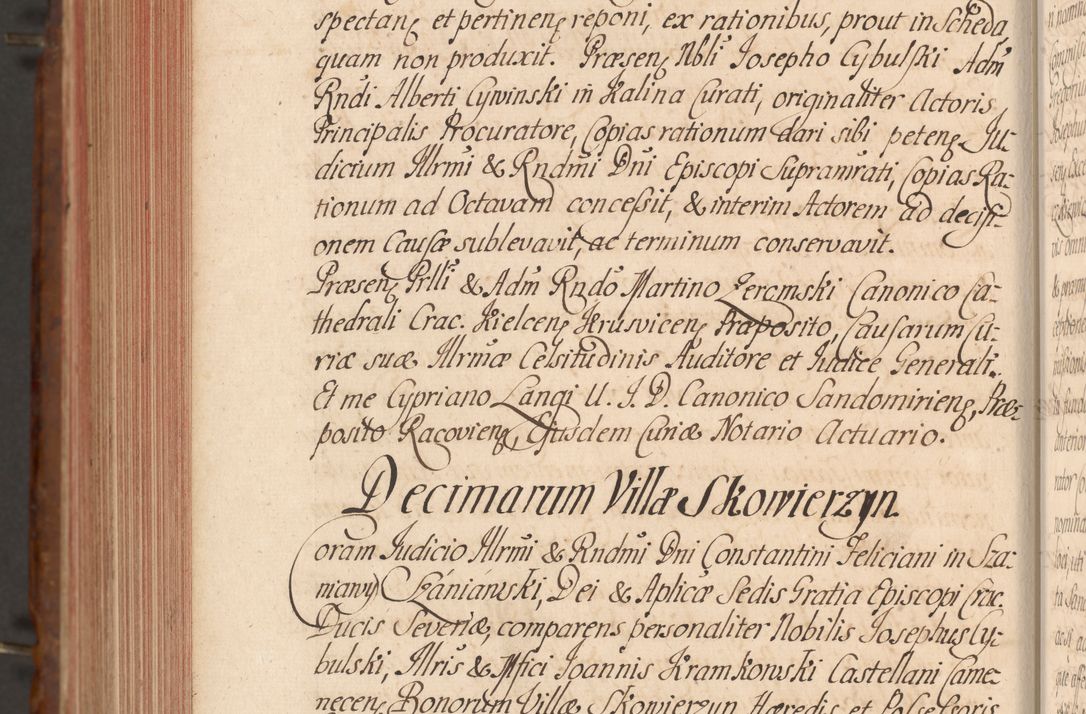 spectanꝫ et pertinenꝫ reponi, ex rationibus, prout in Scheda,
quam non produxit. Præsenꝫ Nbli Josepho Cybulski Adm̃
Rndi Alberti Cywinski in Kalina Curati, originaliter Actoris
Principalis Procuratore, Copias rationum dari sibi petenꝫ Ju-
dicium Illrmi & Rndmi Dni Episcopi supramrati, Copias Ra-
tionum ad Octavam concessit, & interim Actorem ad decisi-
onem Causæ sublevavit, ac terminum conservavit.
Præsenꝫ Prlli & Adm Rndo Martino Zeromski Canonico Ca-
thedrali Crac. Kielcenꝫ Kruśvicenꝫ Præposito, Causarum Cu-
riæ suæ Illrmæ Celsitudinis Auditore et Judice Generali.
Et me Cypriano Langi U. J. D. Canonico Sandomirienꝫ, Præ-
posito Racovienꝫ, Ejusdem Curiæ Notario Actuario.
Decimarum Villæ Skowierzyn
Coram Judicio Illrmi & Rndmi Dni Constantini Feliciani in Sza-
niawy Szániawski, Dei & Aplicæ Sedis Gratia Episcopi Crac.
Ducis Severiæ, comparens personaliter Nobilis Josephus Cy-
bulski, Illris & Mfici Joannis Kramkowski Castellani Came-
necenꝫ Bonorum Villæ Skowierzyn Hæredis et Possessoris